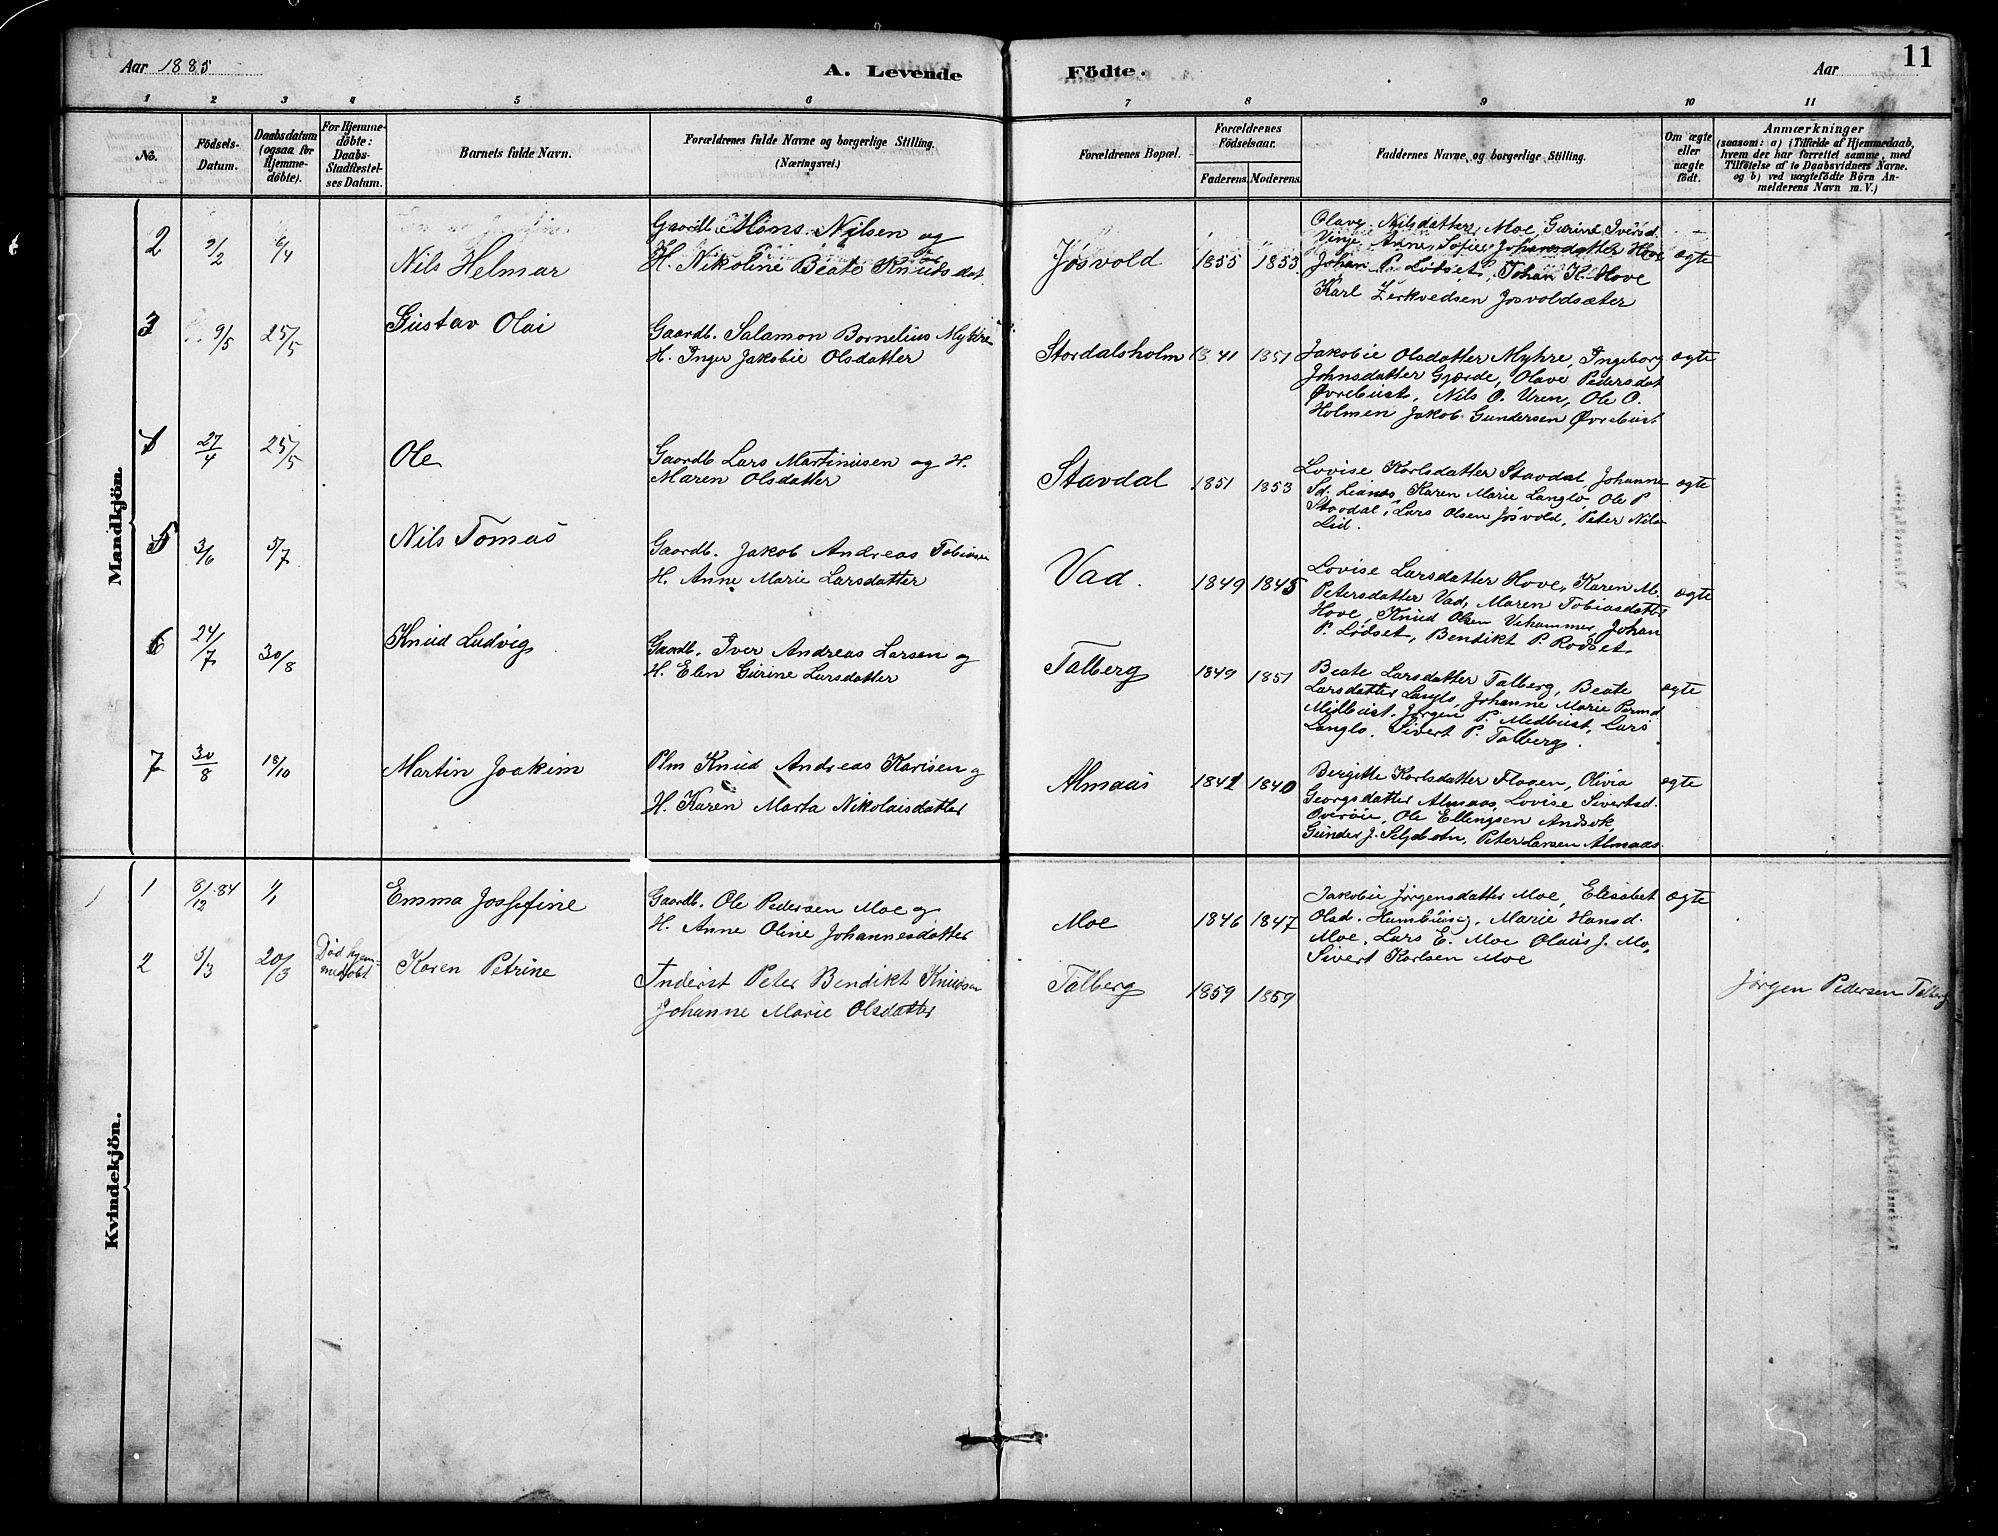 11
Aar 1885
A. Levende Födte.
Aar
1 2 3 4 5 6 7 8 9 10 11
No.
Födsels-
Datum.
Daabsdatum
(ogsaa for
Hjemme-
döbte).
For Hjemme-
döbte:
Daabs-
Stadfæstel-
ses Datum.
Barnets fulde Navn.
Forældrenes fulde Navne og borgerlige Stilling.
(Næringsvei.)
Forældrenes Bopæl.
Forældrenes
Födselsaar.
Faderens. Moderens.
Faddernes Navne og borgerlige Stilling.
Om ægte
eller
uægte
födt.
Anmærkninger
(saasom: a) i Tilfælde af Hjemmedaab,
hvem der har forrettet samme, med
Tilföielse af to Daabsvidners Navne.
og b) ved uægtefödte Börn An-
melderens Navn m. V.)
Mandkjön.
2 9/2 6/4 Nils Helmar
Gaardb. Mons Nilsen og
H. Nikoline Beate Knudsdat.
Jøsvold 1855 1853
Olave Nilsdatter Moe, Gurine Iversd.
Vinje Anne Sofie Johansdatter Hove
Johan P. Lødset, Johan K. Hove
Karl Zerkvedsen Jøsvoldsæter
ægte
3 9/5 25/5 Gustav Olai
Gaardb. Salamon Bornelius Myhre
H. Inger Jakobie Olsdatter
Stordalsholm 1841 1851
Jakobie Olsdatter Myhre, Ingeborg
Johnsdatter Gjærde, Olave Pedersdat
Øvrebust, Nils O. Uren, Ole O.
Holmen Jakob Gundersen Øvrebust
ægte
4 27/4 25/5 Ole
Gaardb. Lars Martinusen og H.
Maren Olsdatter
Stavdal 1851 1853
Lovise Karlsdatter Stavdal Johanne
Sd. Lianes, Karen Marie Langlo, Ole P
Stavdal, Lars Olsen Jøsvold, Peter Nils
Lid.
ægte
5 3/6 5/7 Nils Tomas
Gaardb. Jakob Andreas Tobiasen
H. Anne Marie Larsdatter
Vad. 1849 1845
Lovise Larsdatter Hove, Karen M.
Petersdatter Vad, Maren Tobiasdatter
Hove, Knud Olsen Vehammer, Johan
P. Lødset, Bendikt P. Rødset.
ægte
6 24/7 30/8 Knud Ludvig
Gaardb. Iver Andreas Larsen og
H. Elen Gurine Larsdatter
Talberg 1849 1851
Beate Larsdatter Talberg, Beate
Larsdatter Langlo, Johanne Marie
Midbust. Jørgen P. Midbust, Lars
Langlo, Sivert P. Talberg.
ægte
7 30/8 18/10 Martin Joakim
Plm Knud Andreas Karlsen og
H. Karen Marta Nikolaisdatter
Almaas 1841 1840
Bergitte Karlsdatter Flaaen, Olivia
Georgsdatter Almaas, Lovise Sivertsd.
Overøie, Ole Ellengsen Andsok,
Gunder J. Seljebotn, Peter Larsen Almaas
ægte
Kvindekjön.
1 8/12 84 1/1 Emma Jossefine
Gaardb. Ole Pedersen Moe og
H. Anne Oline Johannesdatter
Moe 1846 1847
Jakobie Jørgensdatter Moe, Elisabet
Olsd. Humbust, Marie Hansd.
Moe, Lars E. Moe Olaus J. Mo,
Sivert Karlsen Moe
ægte
2 5/3 20/3 Død hjem-
medøbt Karen Petrine
Inderst Peter Bendikt Knudsen
Johanne Marie Olsdatter
Talberg 1859 1859
Jørgen Pedersen Talberg